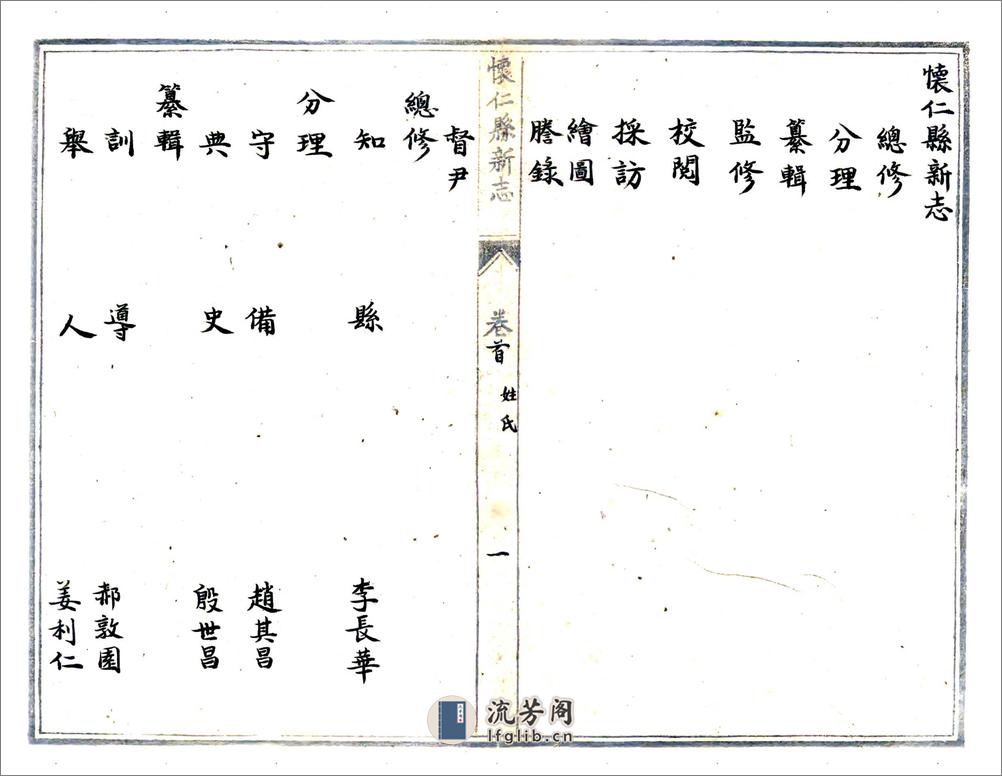 懷仁縣新志
總修
分理
纂輯
監修
校閱
採訪
繪圖
謄錄
懷仁縣新志 卷首 姓氏 一
督尹
總修
知縣 李長華
分理
守備 趙其昌
典史 殷世昌
纂輯
訓導 郝敦園
舉人 姜利仁
流芳阁
lfglib.cn